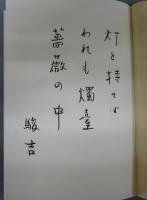 灯を持てば
われも燭臺
薔薇の中
駿吉